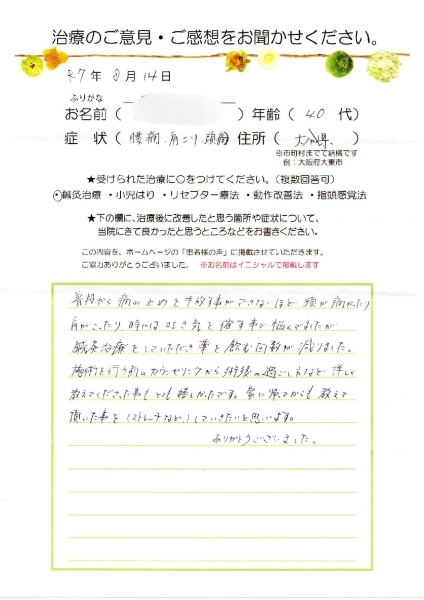 治療のご意見・ご感想をお聞かせください。
R7年 8月 14日
ふりがな
お名前( )年齢( 40 代)
症 状( 腰痛、肩こり、頭痛 )住所( 大阪県、 )
※市町村までで結構です
例:大阪府大東市
★受けられた治療に○をつけてください。(複数回答可)
・鍼灸治療 ・小児はり ・リセプター療法 ・動作改善法 ・指頭感覚法
★下の欄に、治療後に改善したと思う箇所や症状について、
当院にきて良かったと思うところなどをお書きください。
この内容を、ホームページの「患者様の声」に掲載させていただきます。
ご協力ありがとうございました。 ※お名前はイニシャルで掲載します
普段から痛み止めを手放す事ができないほど頭が痛かったり
肩がこったり、時には吐き気を催す事で悩んでましたが
鍼灸治療をしていただき薬を飲む回数が減りました。
施術を行う前のカウンセリングから術後の過ごし方など詳しく
教えてくださった事もとても嬉しかったです。家に帰ってからも教えて
頂いた事を(ストレッチなど、)していきたいと思います。
ありがとうございました。